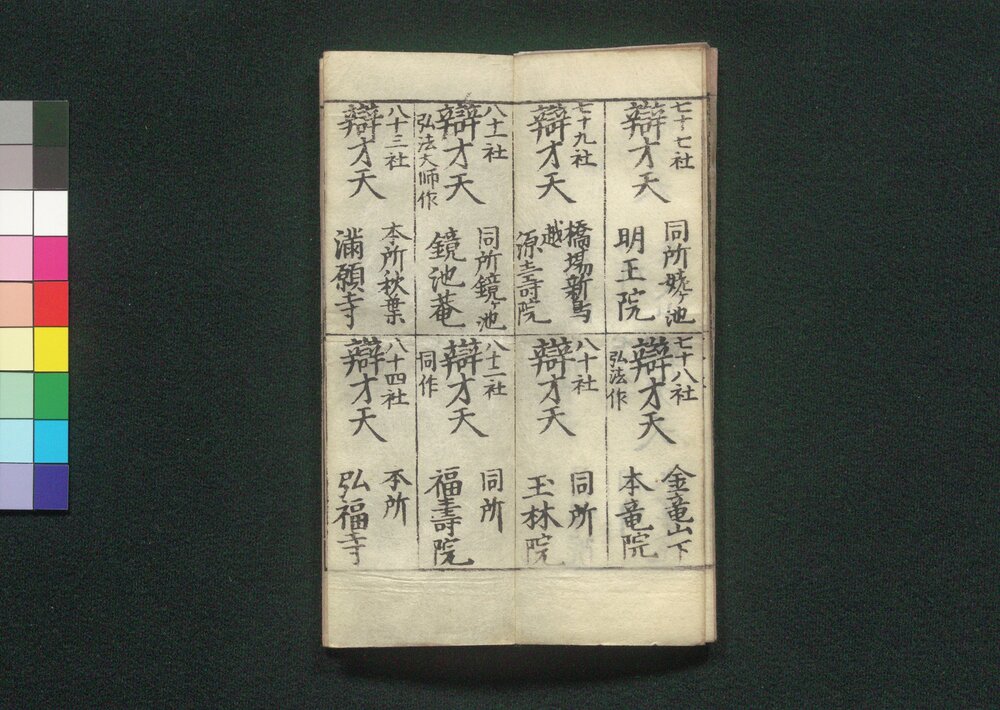 七十七社
辯才天
同所姥ヶ池
明王院
七十八社
辯才天
弘法作
金竜山下
本竜院
七十九社
辯才天
橋場新鳥
越
源寿院
八十社
辯才天
同所
玉林院
八十一社
辯才天
弘法大師作
同所鏡ヶ池
鏡池菴
八十二社
辯才天
同作
同所
福壽院
八十三社
辯才天
本所秋葉
滿願寺
八十四社
辯才天
本所
弘福寺